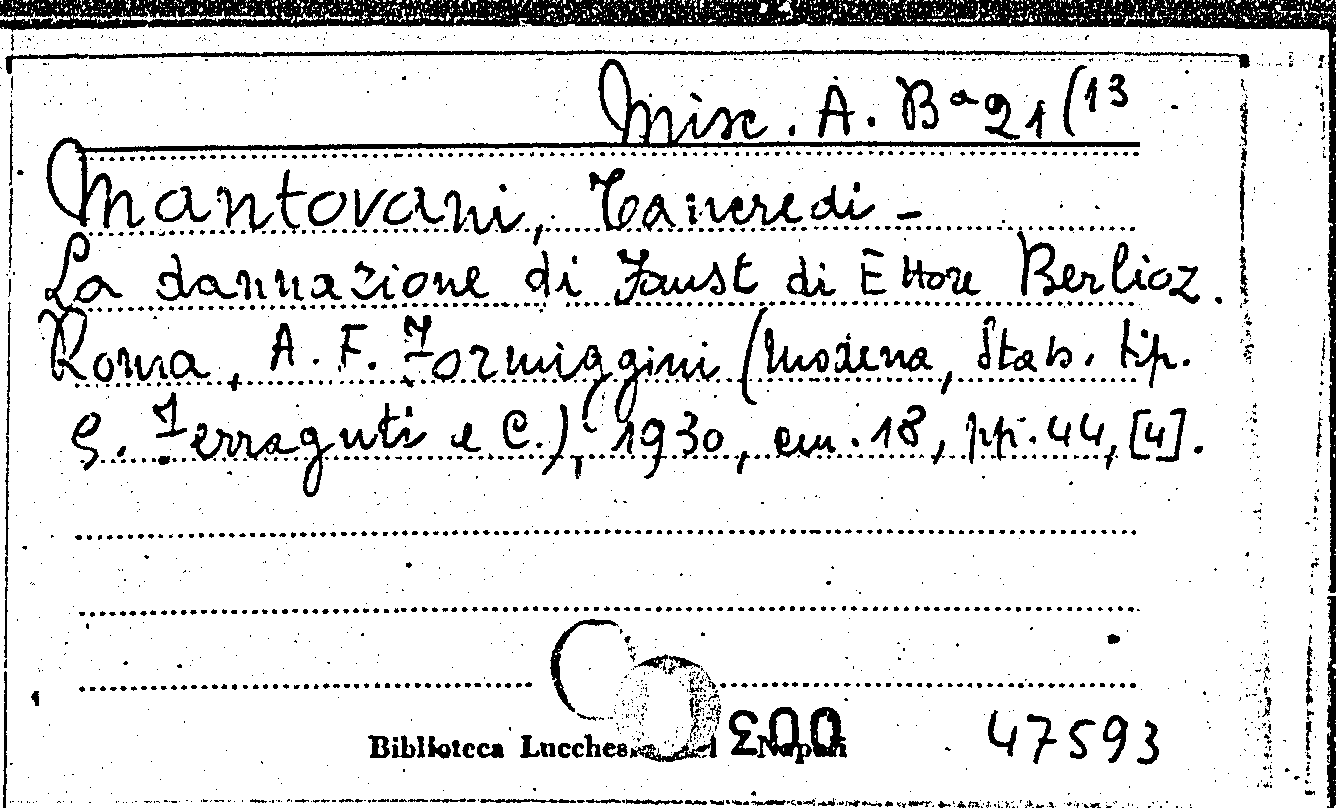 Misc. A. Bª 21 (13
Mantovani, Tancredi -
La dannazione di Faust di Ettore Berlioz.
Roma, A. F. Formiggini (Modena, Stab. tip.
G. Ferraguti e C.), 1930, cm. 18, pp. 44, [4].
Biblioteca Napoli
003
47593